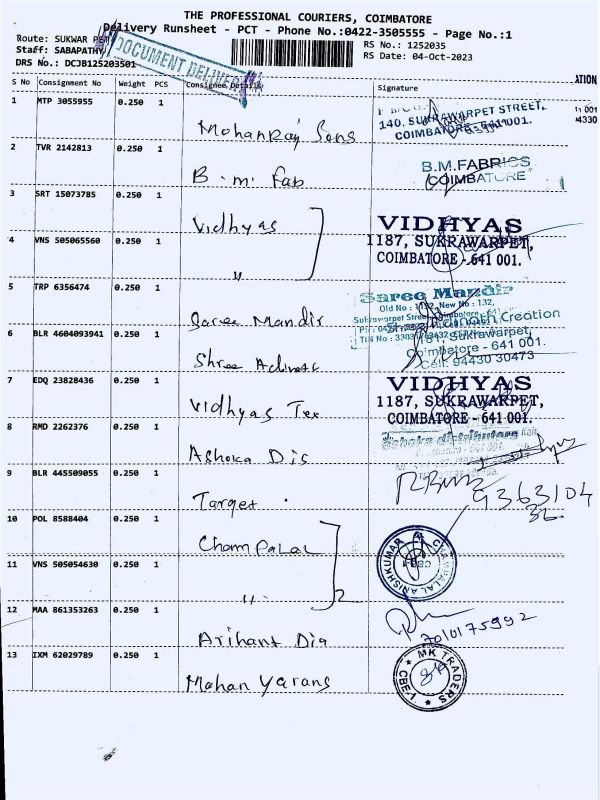 THE PROFESSIONAL COURIERS, COIMBATORE
Delivery Runsheet - PCT - Phone No.:0422-3505555 - Page No.:1
Route: SUKWAR PET
Staff: SABAPATHY
DRS No.: DCJB125203501
DOCUMENT DELIVERY
RS No.: 1252035
RS Date: 04-Oct-2023
S No Consignment No Weight PCS Consignee Details Signature
ATION
001
4330
1 MTP 3055955 0.250 1 Mohanraj Sons
140, SUKRAWARPET STREET,
COIMBATORE - 641001.
2 TVR 2142813 0.250 1 B.m. Fab
B.M.FABRICS
COIMBATORE
3 SRT 15073785 0.250 1 Vidhyas
VIDHYAS
1187, SUKRAWARPET,
COIMBATORE - 641 001.
4 VNS 505065560 0.250 1 "
5 TRP 6356474 0.250 1 Saree Mandir
Saree Mandir
Old No : 1152, New No : 132,
6 BLR 4604093941 0.250 1 Shree Adinath
Adinath Creation
Sukrawarpet,
Coimbatore - 641 001.
Cell: 94430 30473
7 EDQ 23828436 0.250 1 Vidhyas Tex
VIDHYAS
1187, SUKRAWARPET,
COIMBATORE - 641 001.
8 RMD 2262376 0.250 1 Ashoka Dis
Ashoka distributors
9 BLR 445509055 0.250 1 Target
9363104
36
10 POL 8588404 0.250 1 Champalal
CHAMPALAL ANISHKUMAR
CBE-1
11 VNS 505054630 0.250 1 " 2
12 MAA 861353263 0.250 1 Arihant Dis
7010175992
13 IXM 62029789 0.250 1 Mohan Yarans
MK TRADERS
CBE-1